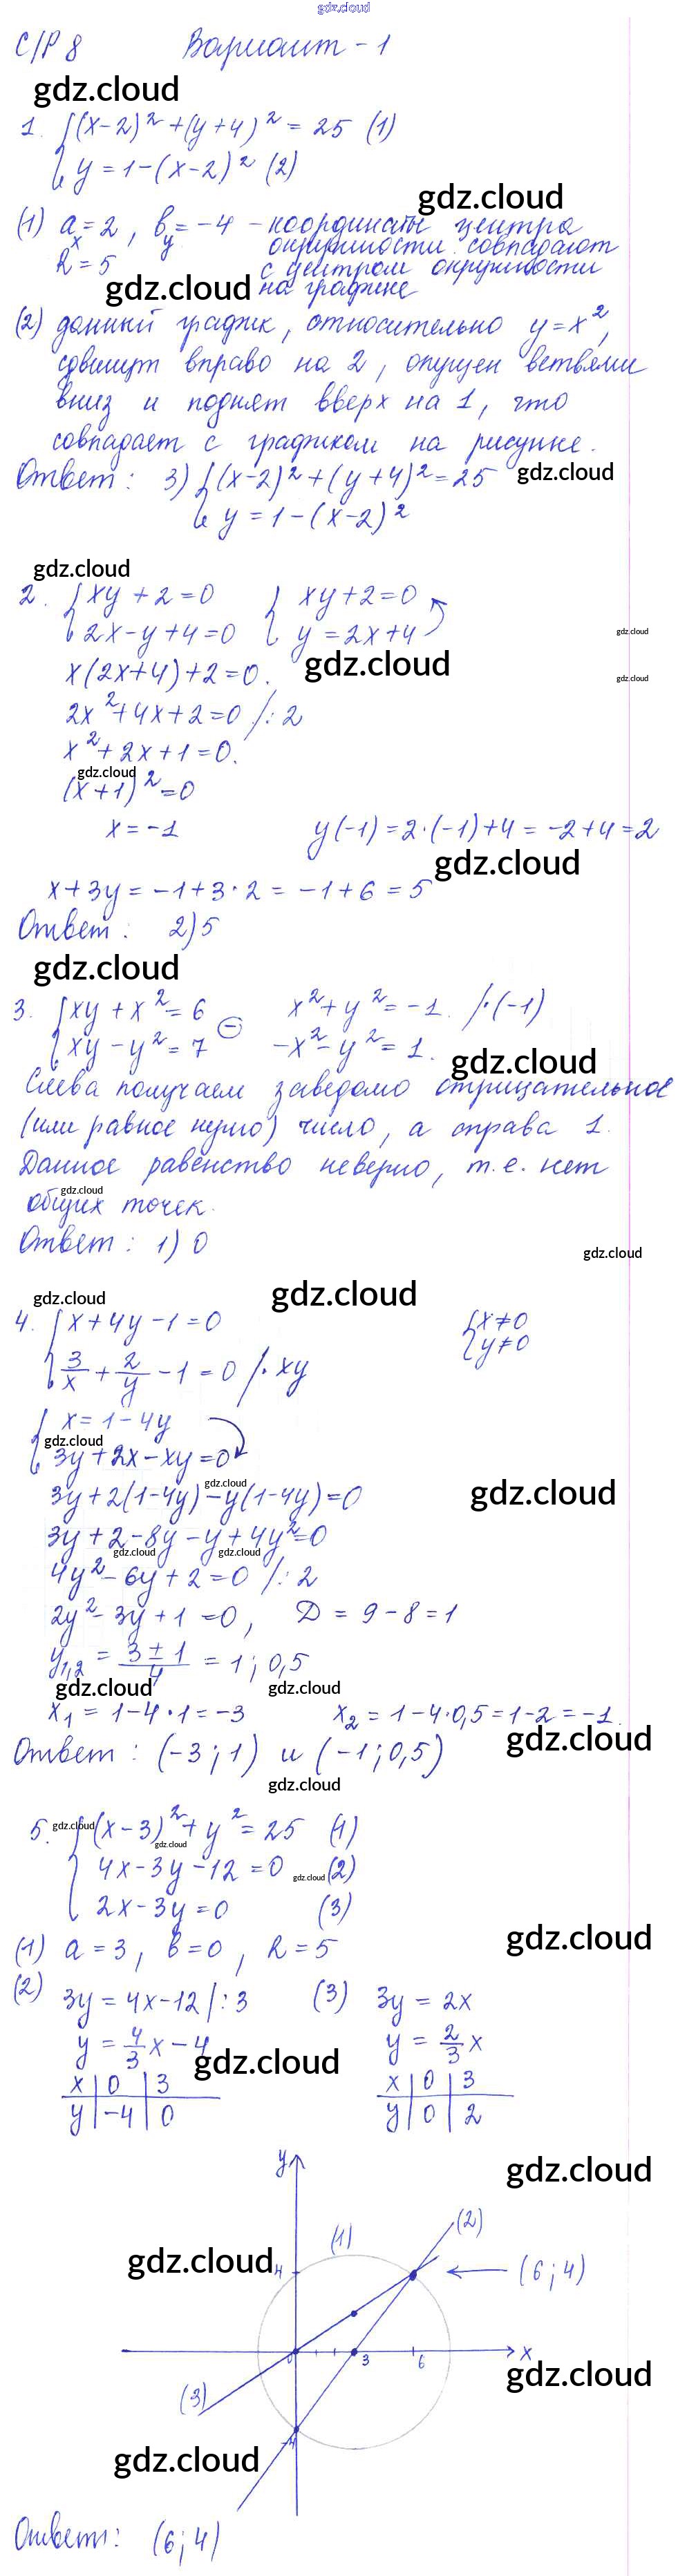 gdz.cloud
С/Р 8 Вариант - 1
gdz.cloud
1. { (x-2)² + (y+4)² = 25 (1)
y = 1 - (x-2)² (2)
gdz.cloud
(1) a = 2, b = -4 - координаты центра
x y окружности совпадают
R = 5 с центром окружности
gdz.cloud на графике
(2) данный график, относительно y = x²,
сдвинут вправо на 2, опущен ветвями
вниз и поднят вверх на 1, что
совпадает с графиком на рисунке.
Ответ: 3) { (x-2)² + (y+4)² = 25 gdz.cloud
y = 1 - (x-2)²
gdz.cloud
2. { xy + 2 = 0 { xy + 2 = 0
2x - y + 4 = 0 y = 2x + 4 gdz.cloud
gdz.cloud
x(2x+4) + 2 = 0. gdz.cloud
2x² + 4x + 2 = 0 /: 2
x² + 2x + 1 = 0.
gdz.cloud
(x+1)² = 0
x = -1 y(-1) = 2·(-1) + 4 = -2 + 4 = 2
gdz.cloud
x + 3y = -1 + 3·2 = -1 + 6 = 5
Ответ: 2) 5
gdz.cloud
3. { xy + x² = 6 ⊖ x² + y² = -1. /·(-1)
xy - y² = 7 -x² - y² = 1.
gdz.cloud
Слева получаем заведомо отрицательное
(или равное нулю) число, а справа 1.
Данное равенство неверно, т.е. нет
gdz.cloud
общих точек.
Ответ: 1) 0
gdz.cloud
gdz.cloud gdz.cloud
4. { x + 4y - 1 = 0 { x ≠ 0
y ≠ 0
3/x + 2/y - 1 = 0 /· xy
{ x = 1 - 4y
gdz.cloud
3y + 2x - xy = 0
gdz.cloud gdz.cloud
3y + 2(1-4y) - y(1-4y) = 0
3y + 2 - 8y - y + 4y² = 0
gdz.cloud gdz.cloud
4y² - 6y + 2 = 0 /: 2
2y² - 3y + 1 = 0, D = 9 - 8 = 1
y₁,₂ = (3 ± 1)/4 = 1; 0,5
gdz.cloud gdz.cloud
x₁ = 1 - 4·1 = -3 x₂ = 1 - 4·0,5 = 1 - 2 = -1.
gdz.cloud
Ответ: (-3; 1) и (-1; 0,5)
gdz.cloud
5. gdz.cloud { (x-3)² + y² = 25 (1)
gdz.cloud
4x - 3y - 12 = 0 gdz.cloud (2)
2x - 3y = 0 (3)
gdz.cloud
(1) a = 3, b = 0, R = 5
(2) 3y = 4x - 12 /: 3 (3) 3y = 2x
y = 4/3 x - 4 y = 2/3 x
gdz.cloud
x | 0 | 3 x | 0 | 3
y | -4 | 0 y | 0 | 2
y
gdz.cloud
(1) (2)
gdz.cloud 4 (6; 4)
0 3 6 x
gdz.cloud
(3)
-4
gdz.cloud
Ответ: (6; 4)